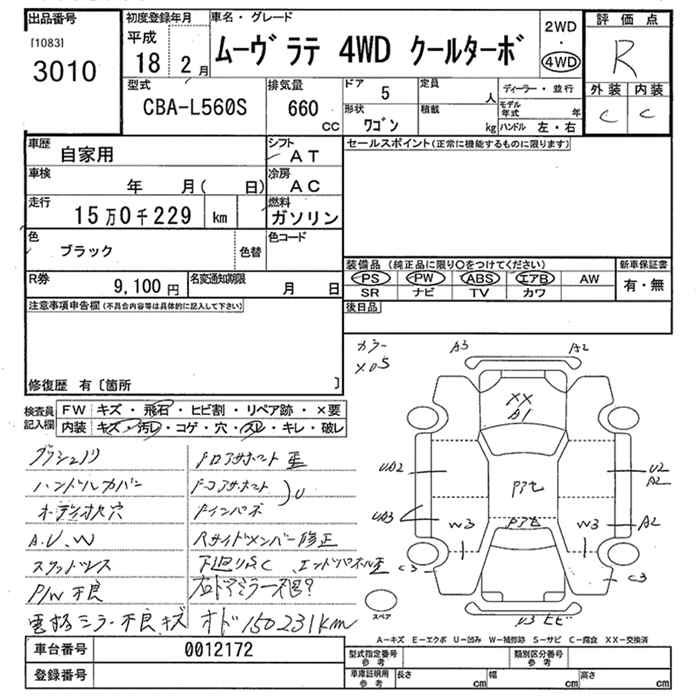 出品番号
[1083]
3010
初度登録年月
平成
18 2月
車名・グレード
ムーヴ ラテ 4WD クールターボ
2WD
・
4WD
評価点
R
外装 内装
C C
型式
CBA-L560S
排気量
660
cc
ドア 5
形状
ワゴン
定員 人
積載 kg
ディーラー・並行
モデル年式 年
ハンドル 左・右
車歴
自家用
シフト
AT
セールスポイント(正常に機能するものに限ります)
車検
年 月( 日)
冷房
AC
走行
15万0千229 km
燃料
ガソリン
色
ブラック
色替
色コード
R券
9,100円
名変通知期限
月 日
装備品 (純正品に限り○をつけてください)
新車保証書
PS PW ABS エアB AW
SR ナビ TV カワ
有・無
注意事項申告欄(不具合内容等は具体的に記入して下さい)
後日品
修復歴 有〔箇所 〕
検査員
記入欄
FW キズ・飛石・ヒビ割・リペア跡・×要
内装 キズ・汚レ・コゲ・穴・スレ・キレ・破レ
ハンドルカバー
オーディオ火穴
A.U、W
スタッドレス
P/W 不良
電格ミラー不良 キズ
Fインパネ
Rサイドメンバー修正
下廻りS.C エンドパネル歪
右ドアミラー不良?
オド150231km
カラー
X05
A3 A2
XX
A1
UA2 U2
A2
UA3 A2
W3 W3
C3 C3
スペア
U3 ヒビ
A－キズ E－エクボ U－凹み W－補修跡 S－サビ C－腐食 XX－交換済
車台番号 0012172
登録番号
型式指定番号
参考
類別区分番号
参考
車庫証明用
参考
長さ cm 幅 cm 高さ cm